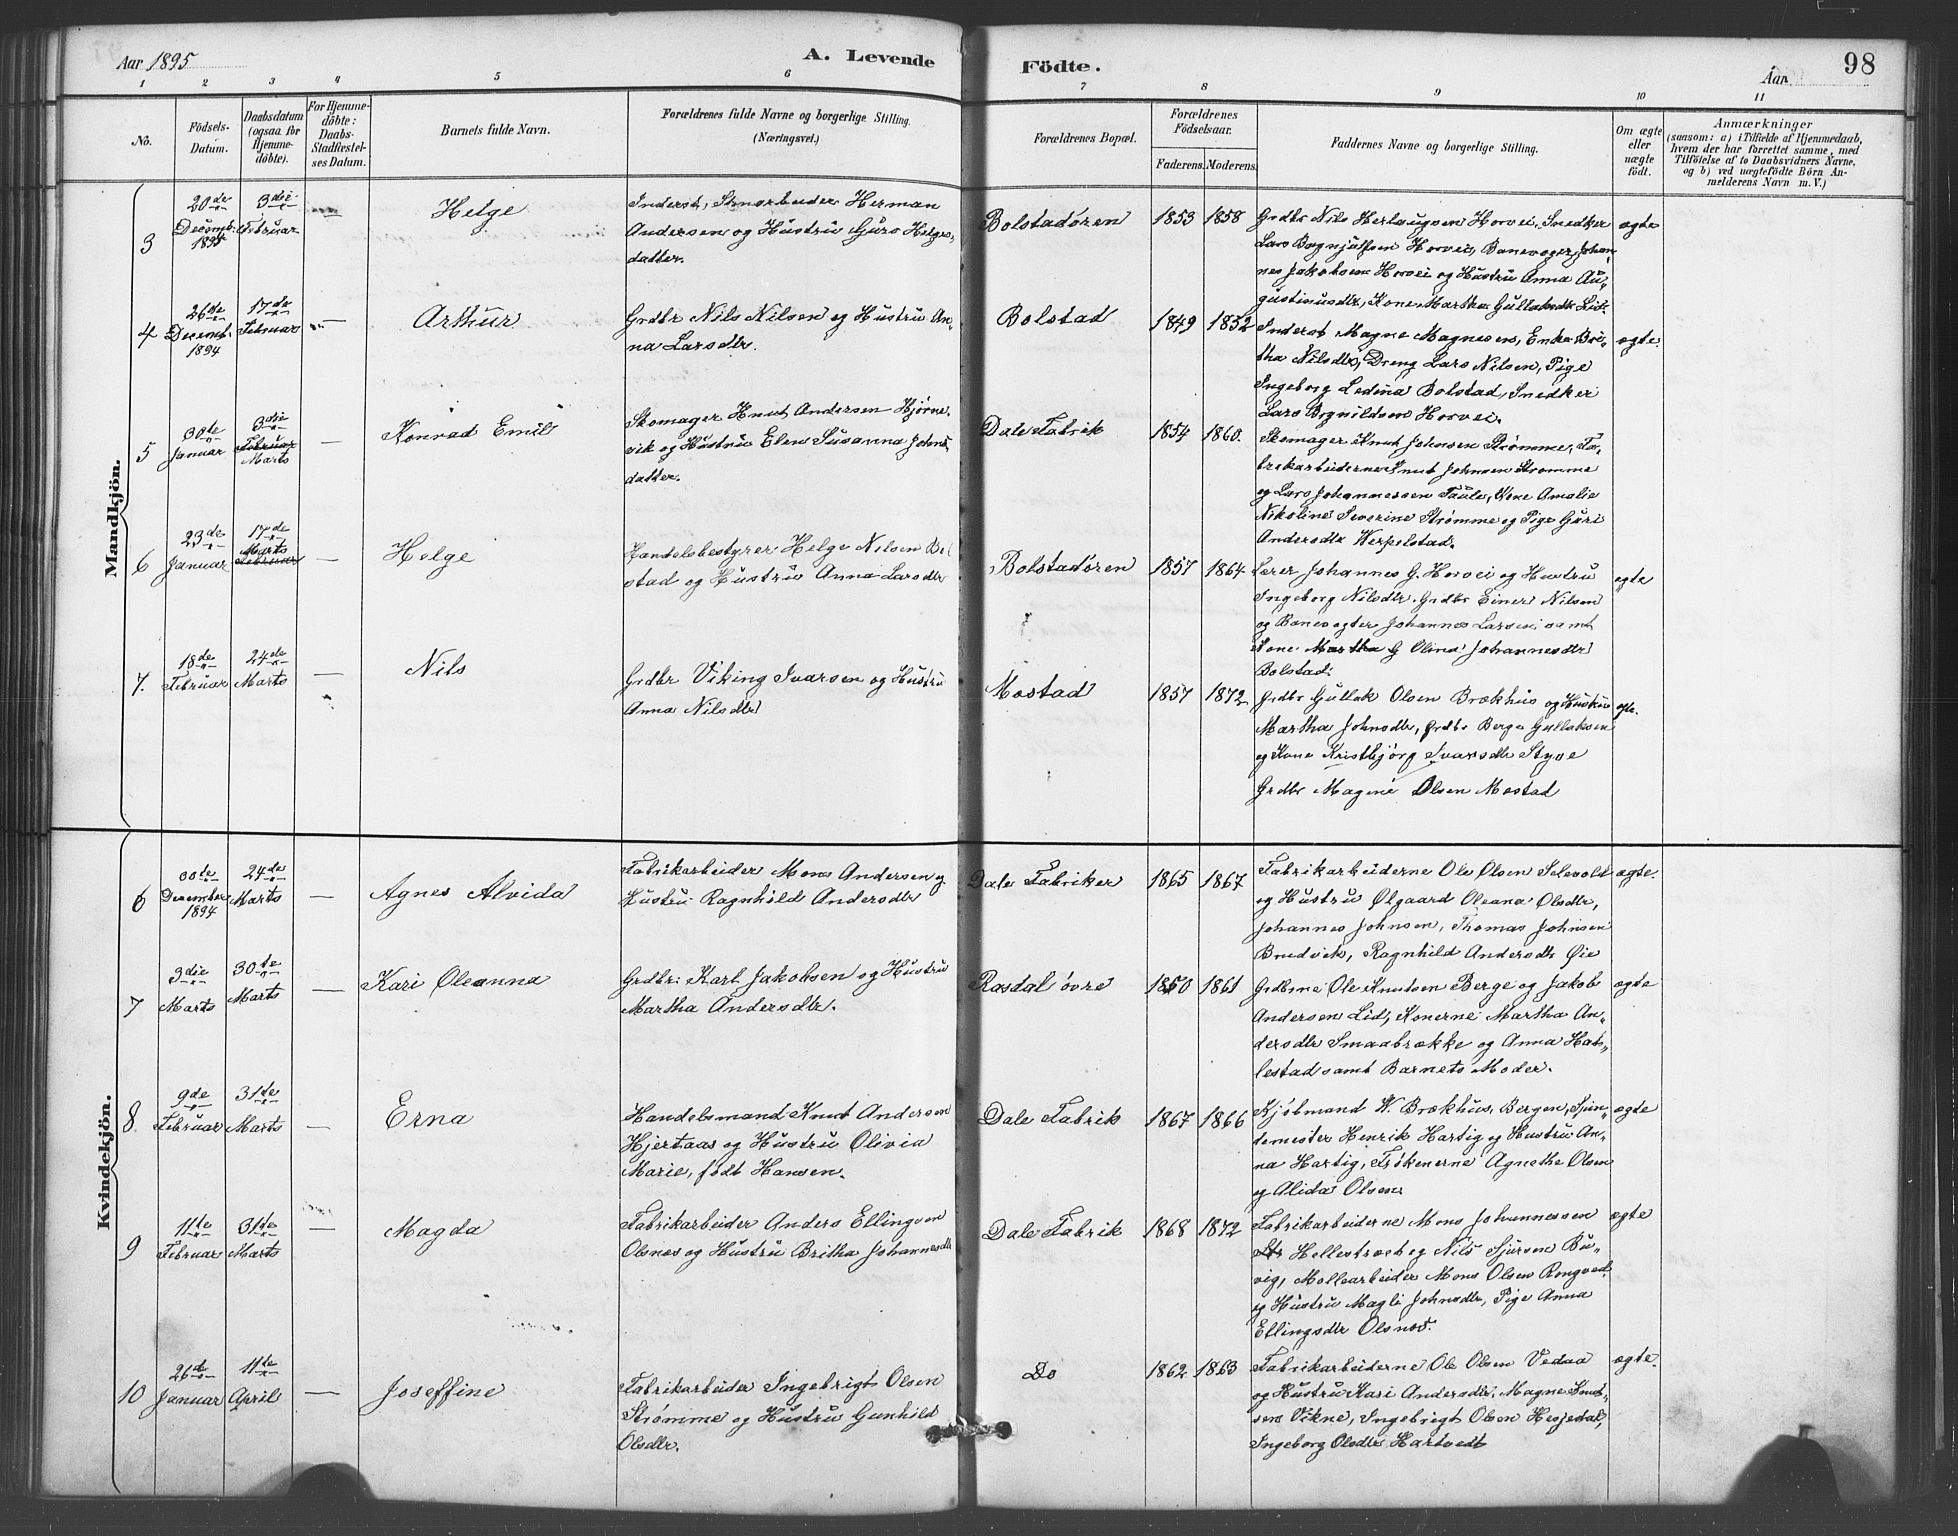 Aar 1895
A. Levende
Födte.
Aar
98
1 2 3 4 5 6 7 8 9 10 11
No.
Födsels-
Datum.
Daabsdatum
(ogsaa for
Hjemme-
döbte).
For Hjemme-
döbte:
Daabs-
Stadfæstel-
ses Datum.
Barnets fulde Navn.
Forældrenes fulde Navne og borgerlige Stilling.
(Næringsvei.)
Forældrenes Bopæl.
Forældrenes
Födselsaar.
Faderens. Moderens.
Faddernes Navne og borgerlige Stilling.
Om ægte
eller
uægte
födt.
Anmærkninger
(saasom: a) i Tilfælde af Hjemmedaab,
hvem der har forrettet samme, med
Tilföielse af to Daabsvidners Navne,
og b) ved uægtefödte Börn An-
melderens Navn m. V.)
Mandkjön.
3
20de
Decemb.
1894
3die
Februar
—
Helge
Inderst, Herman
Andersen og Hustru Guro Helges-
datter.
Bolstadøren
1853 1858
Grdbr Nils Herlaugsen Horvei, Snedker
Lars Horvei, Banevogter Johan-
nes Jakobsen Horvei og Hustru Anna Au-
gustinusdtr, Kone Martha Gullaksdtr Lid.
ægte
4
26de
Decemb.
1894
17de
Februar
—
Arthur
Grdbr Nils Nilsen og Hustru An-
na Larsdtr.
Bolstad
1849 1852
Inderst Magne Magnesen, Enke Bri-
tha Nilsdtr, Dreng Lars Nilsen, Pige
Ingeborg Bolstad, Snedker
Lars Horvei.
ægte.
5
30te
Januar
3die
Februar
Marts
—
Konrad Emil
Skomager Knut Andersen Hjørne-
vik og Hustru Elen Susanna Johns-
datter.
Dale Fabrik
1854 1860.
Skomager Knut Johnsen Strømme, Fa-
brikarbeiderne Knut Johnsen Strømme
og Lars Johannessen Taule, Kone Amalie
Nikoline Severine Strømme og Pige Guri
Andersdtr Werpelstad.
6
23de
Januar
17de
Marts
Februar
—
Helge
Handelsbestyrer Helge Nilsen Bol
stad og Hustru Anna Larsdtr
Bolstadøren
1857 1864
Lærer Johannes G. Horvei og Hustru
Ingeborg Nilsdtr. Grdbr Einer Nilsen
og Banevogter Johannes Larsen samt
Kone Martha G Olina Johannesdtr
Bolstad.
ægte
7.
18de
Februar
24de
Marts
—
Nils
Grdbr Viking Ivarsen og Hustru
Anna Nilsdtr
Mostad
1857 1872
Grdbr Gullak Olsen Brækhus og Hustru
Martha Johnsdtr, Grdbr Berge Gullaksen
og Kone Kristbjørg Ivarsdtr Styve
Grdbr Magne Olsen Mostad
ægte.
Kvindekjön.
6
30te
December
1894
24de
Marts
—
Agnes Alvida
Fabrikarbeider Mons Andersen og
Hustru Ragnhild Andersdtr
Dale Fabriker
1865 1867
Fabrikarbeiderne Ole Olsen Selevold
og Hustru Ølgaard Oleana Olsdtr,
Johannes Johnsen, Thomas Johnsen
Brudvik, Ragnhild Andersdtr Øie
ægte.
7
3die
Marts
30te
Marts
—
Kari Oleanna
Grdbr: Karl Jakobsen og Hustru
Martha Andersdtr.
Rasdal øvre
1850 1861
Grdbrne Ole Knutsen Berge og Jakob
Andersen Lid, Konerne Martha An-
dersdtr Smaabrække og Anna Hats-
lestad samt Barnets Moder.
ægte
8.
9de
Februar
31te
Marts
—
Erna
Handelsmand Knut Andersen
Hjertaas og Hustru Olivia
Marie, født Hansen.
Dale Fabrik
1867 1866
Kjøbmand W. Brækhus, Bergen,
mester Henrik Hartig og Hustru An-
na Hartig, Frøknerne Agnethe Olsen
og Alida Olsen
ægte
9
11te
Februar
31te
Marts
—
Magda
Fabrikarbeider Anders Ellingsen
Olsnæs og Hustru Britha Johannesdtr
Dale Fabrik
1868 1872
Fabrikarbeiderne Mons Johannessen
Hellestræt og Nils Sjursen Bu-
vig, Møllearbeider Mons Olsen Rongved
og Hustru Magli Johnsdtr, Pige Anna
Ellingsdtr Olsnæs.
ægte
10
26de
Januar
11te
April
—
Joseffine
Fabrikarbeider Ingebrigt Olsen
Strømme og Hustru Gunhild
Olsdtr.
Do
1862 1863
Fabrikarbeiderne Ole Olsen Vedaa
og Hustru Kari Andersdtr, Magne Knut-
sen Vikne, Ingebrigt Olsen Hesjedal,
Ingeborg Olsdtr Hartvedt
ægte.